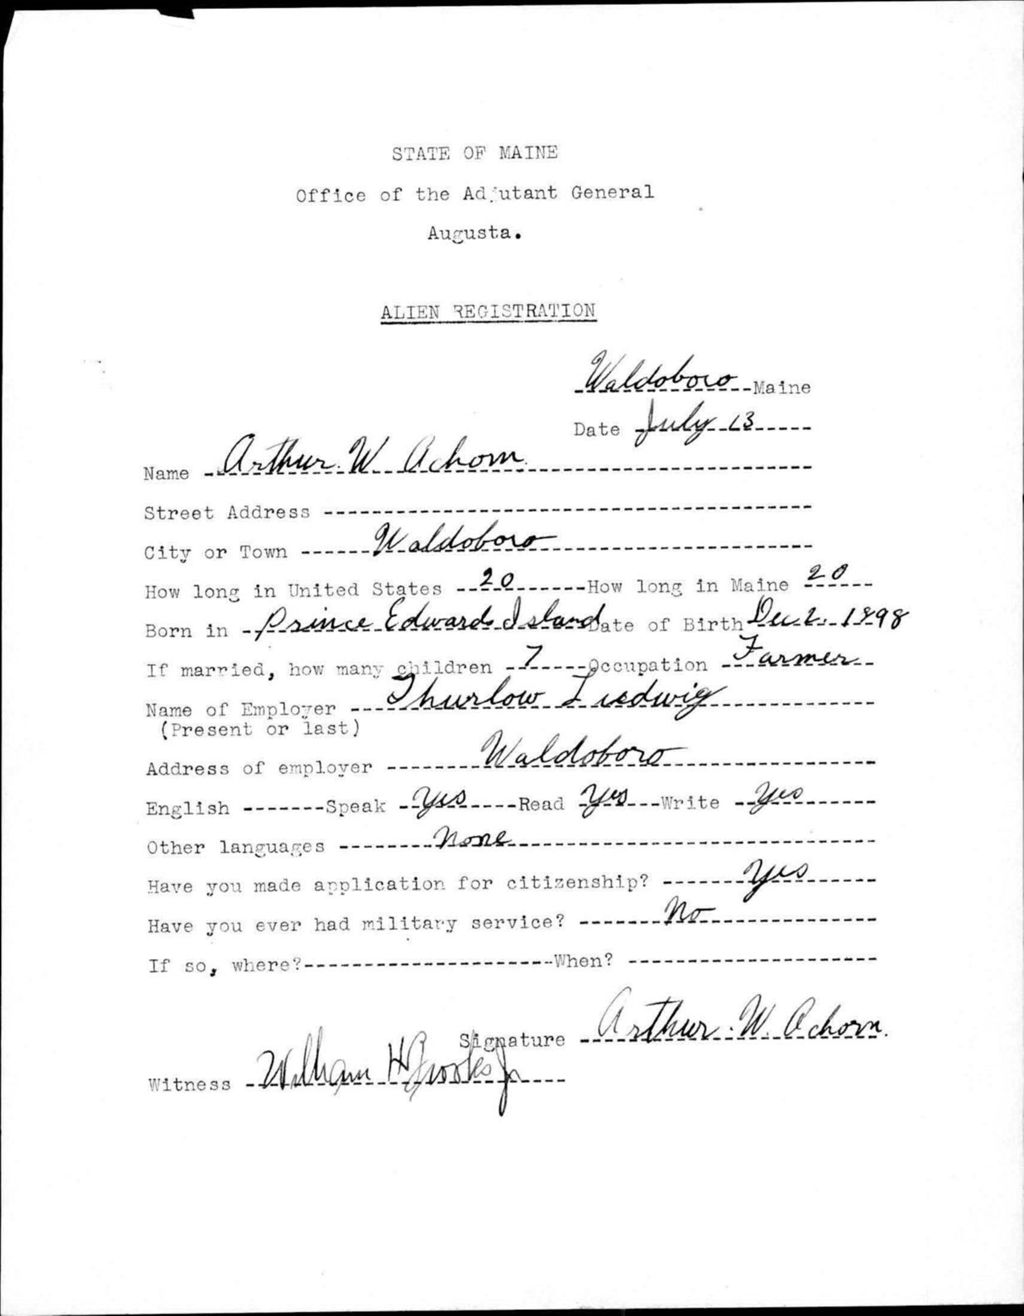 STATE OF MAINE
Office of the Adjutant General
Augusta.
ALIEN REGISTRATION
Waldoboro Maine
Date July 13
Name Arthur W Achorn
Street Address
City or Town Waldoboro
How long in United States 20 How long in Maine 20
Born in Prince Edward Island Date of Birth Dec 2. 1898
If married, how many children 7 Occupation Farmer
Name of Employer Thurlow Ludwig
(Present or last)
Address of employer Waldoboro
English Speak Yes Read Yes Write Yes
Other languages None
Have you made application for citizenship? Yes
Have you ever had military service? No
If so, where? When?
Signature Arthur. W. Achorn.
Witness William H Brooks Jr